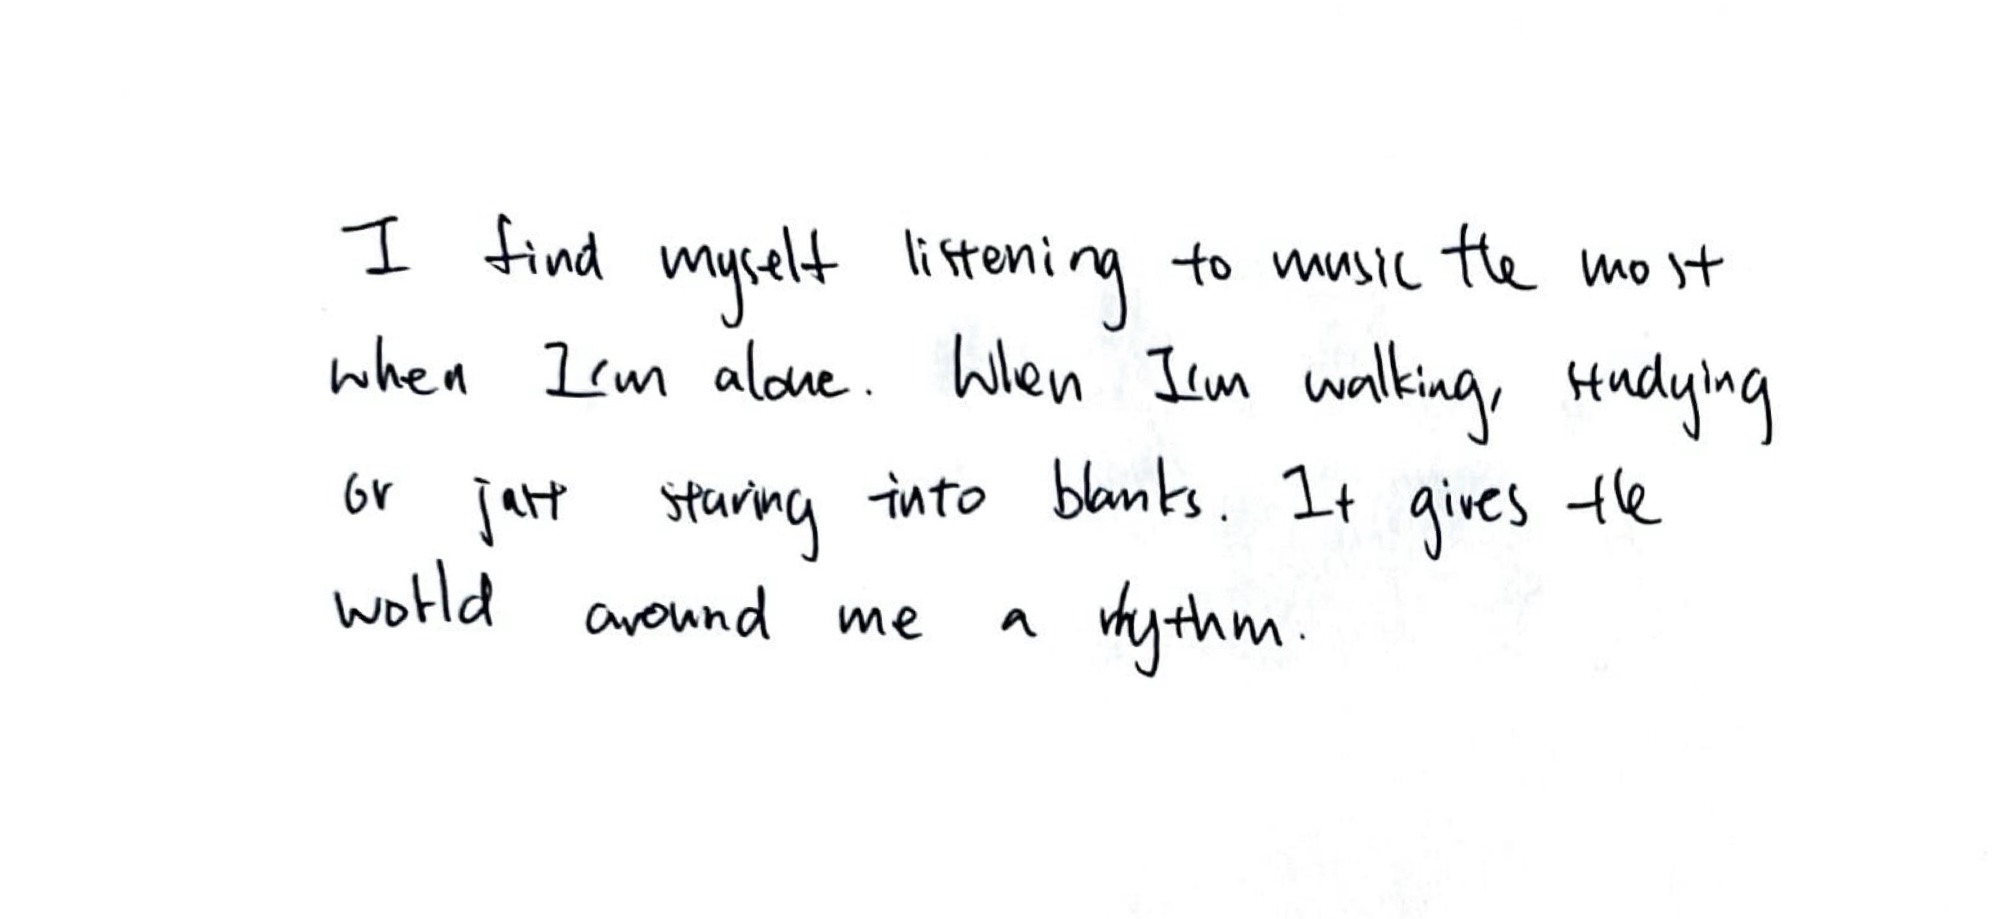 I find myself listening to music the most
when I'm alone. When I'm walking, studying
or just staring into blanks. It gives the
world around me a rhythm.